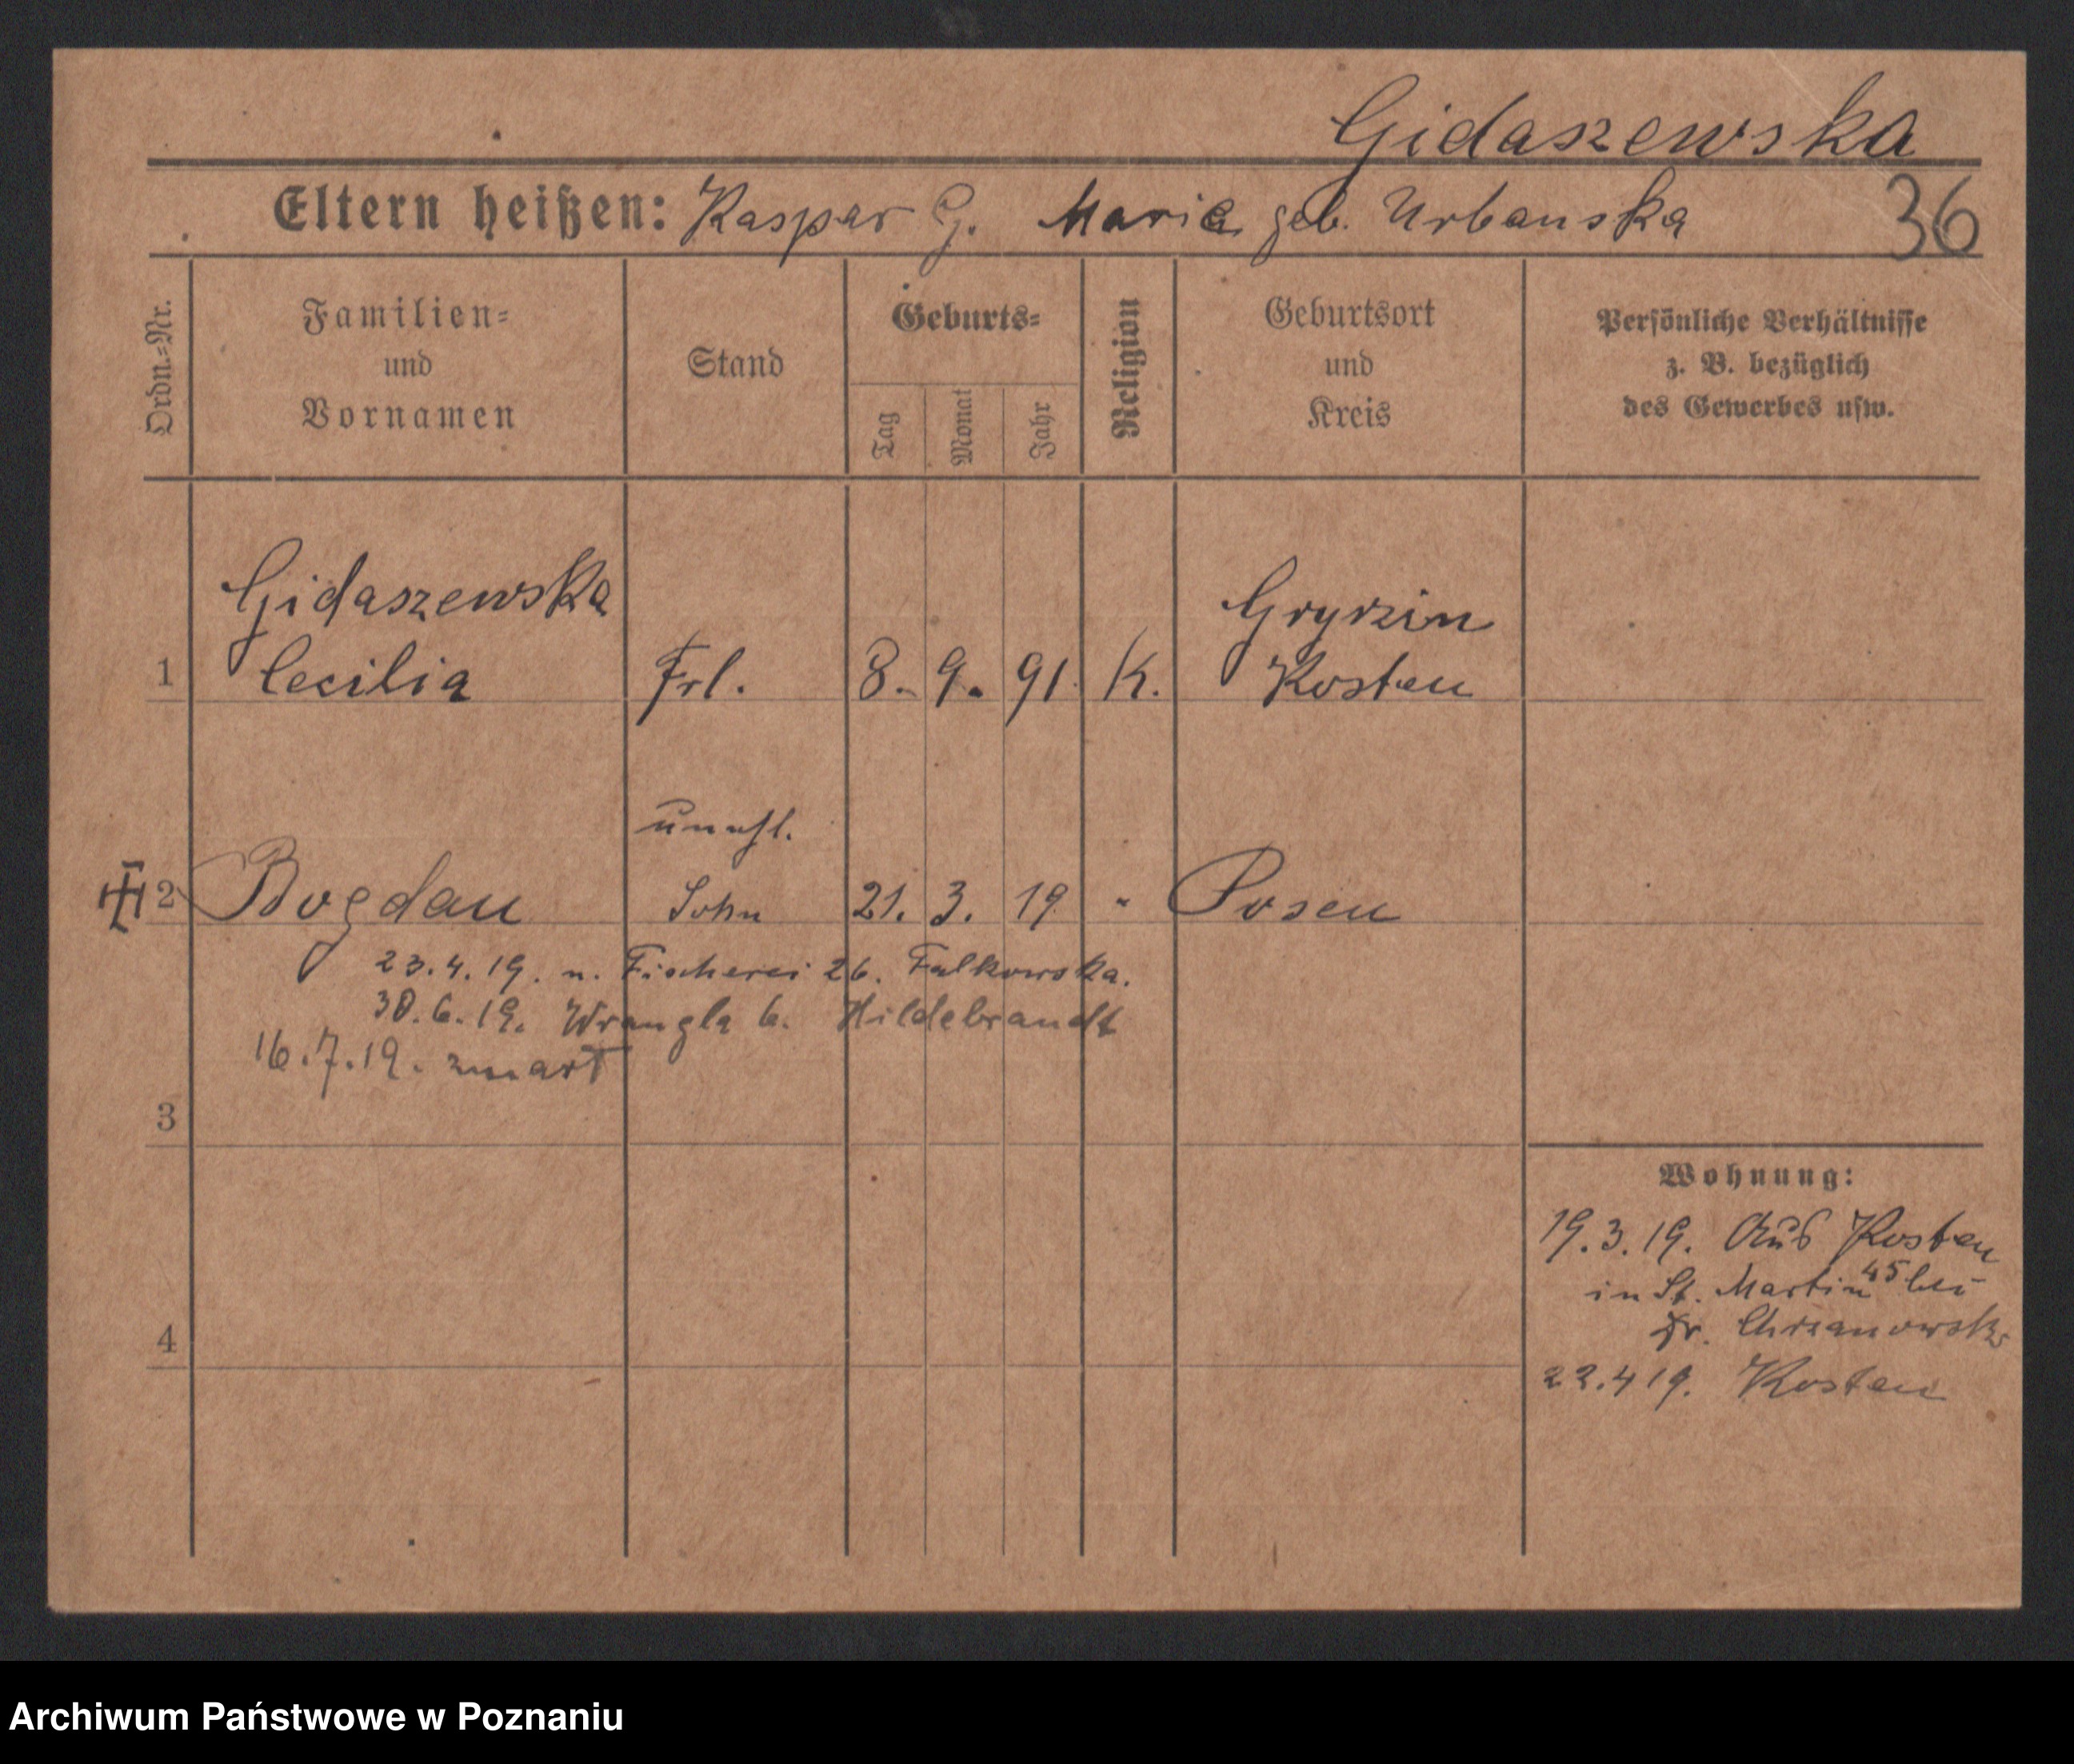 Gidaszewska
Eltern heißen: Kaspar G. Marie geb. Urbanska
36
Ordn.=Nr.
Familien=
und
Vornamen
Stand
Geburts=
Tag
Monat
Jahr
Religion
Geburtsort
und
Kreis
Persönliche Verhältnisse
z. B. bezüglich
des Gewerbes usw.
Gidaszewska
Gryrzin
1 Cecilia Frl. 8. 9. 91. K. Kosten
unehl.
2 Bogdan Sohn 21. 3. 19 " Posen
23.4.19. n. Fischerei 26. Falkowska.
30.6.19. Wrangla 6. Hildebrandt
16.7.19. zmart
3
Wohnung:
19.3.19. Aus Kosten
in St. Martin 45 bei
Fr. Chrzanowsk
4
22.4 19. Kosten
Archiwum Państwowe w Poznaniu